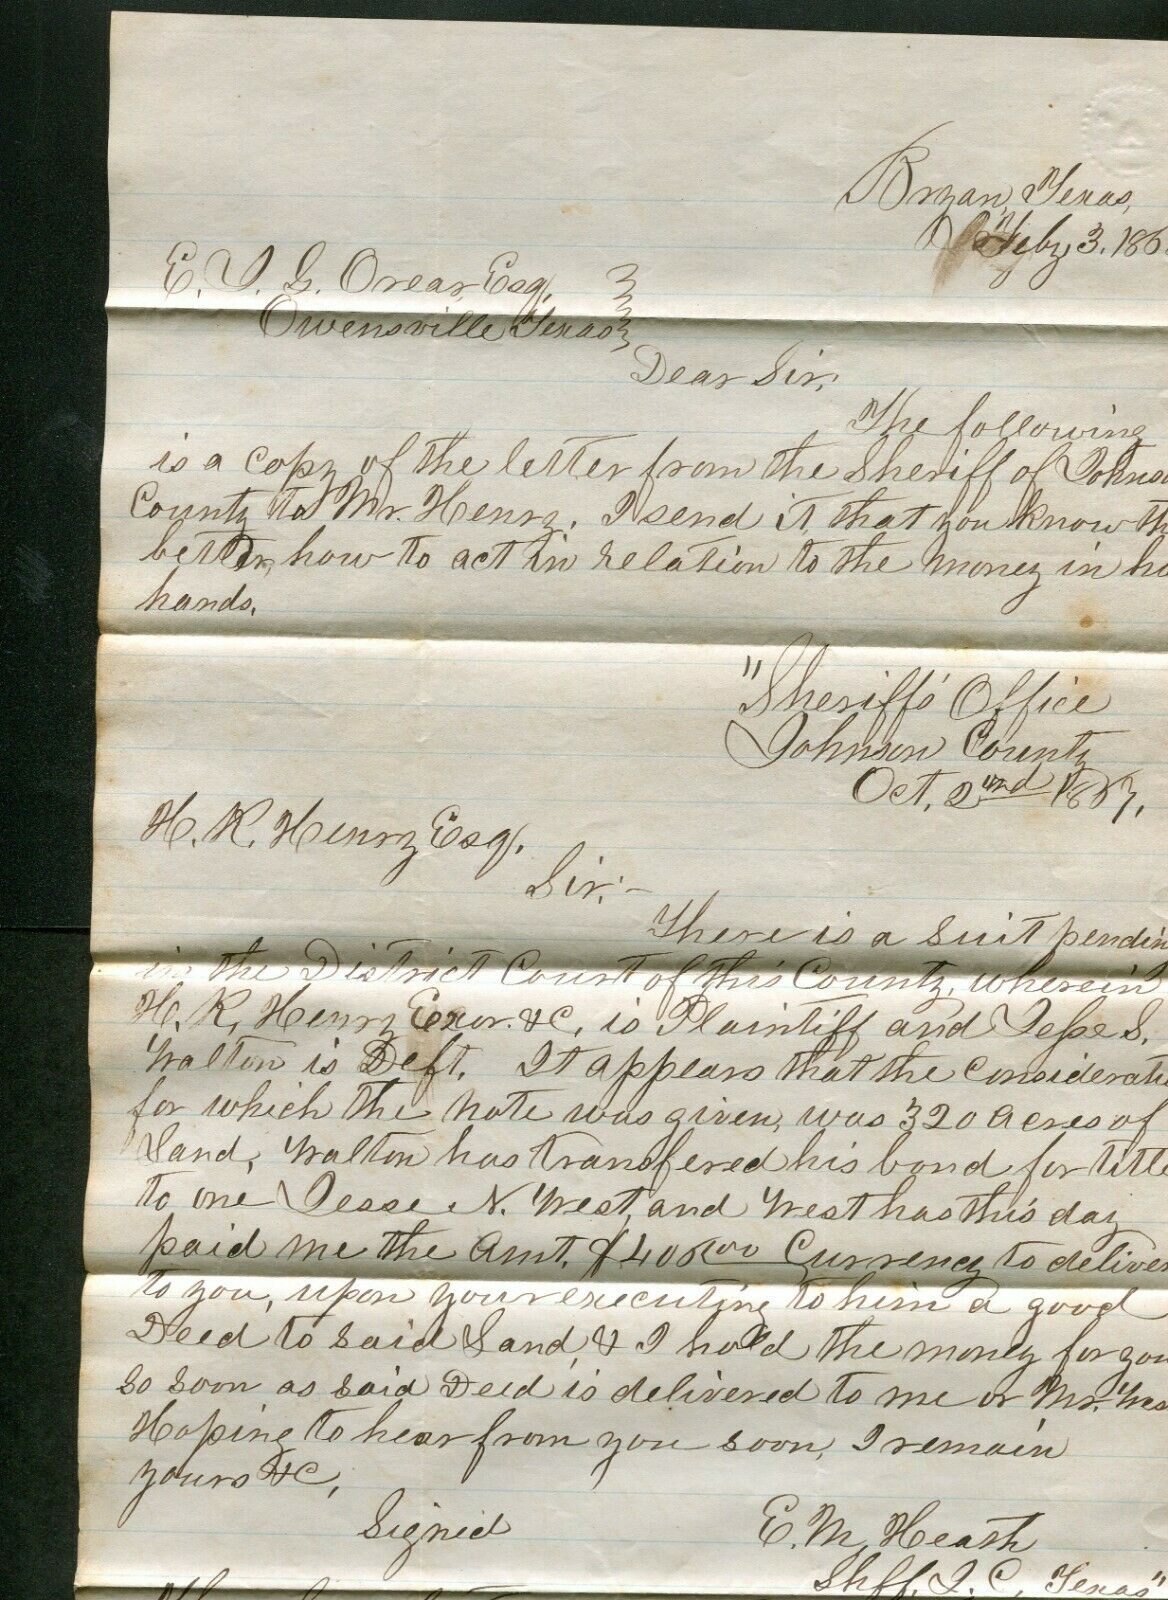 Bryan, Texas,
Feby 3. 186
E. T. G. Orear, Esq.
Owensville Texas
Dear Sir,
The following
is a copy of the letter from the Sheriff of Johnso
County to Mr. Henry. I send it that you know th
better, how to act in relation to the money in h
hands.
"Sheriff's Office
Johnson County
Oct. 2nd 1867.
H. K. Henry Esq.
Sir:-
There is a suit pendin
in the District Court of this County, wherein
H. K. Henry Exor. &C, is Plaintiff and Jesse S.
Walton is Deft. It appears that the Considerati
for which the note was given, was 320 Acres of
Land, Walton has transfered his bond for title
to one Jesse N. West, and West has this day
paid me the Amt. $406.00 Currency to deliver
to you, upon your executing to him a good
Deed to said Land, & I hold the money for you
so soon as said Deed is delivered to me or Mr. Wes
Hoping to hear from you soon, I remain
yours &C,
Signed
E. M. Heath
Shff. J. C. Texas"